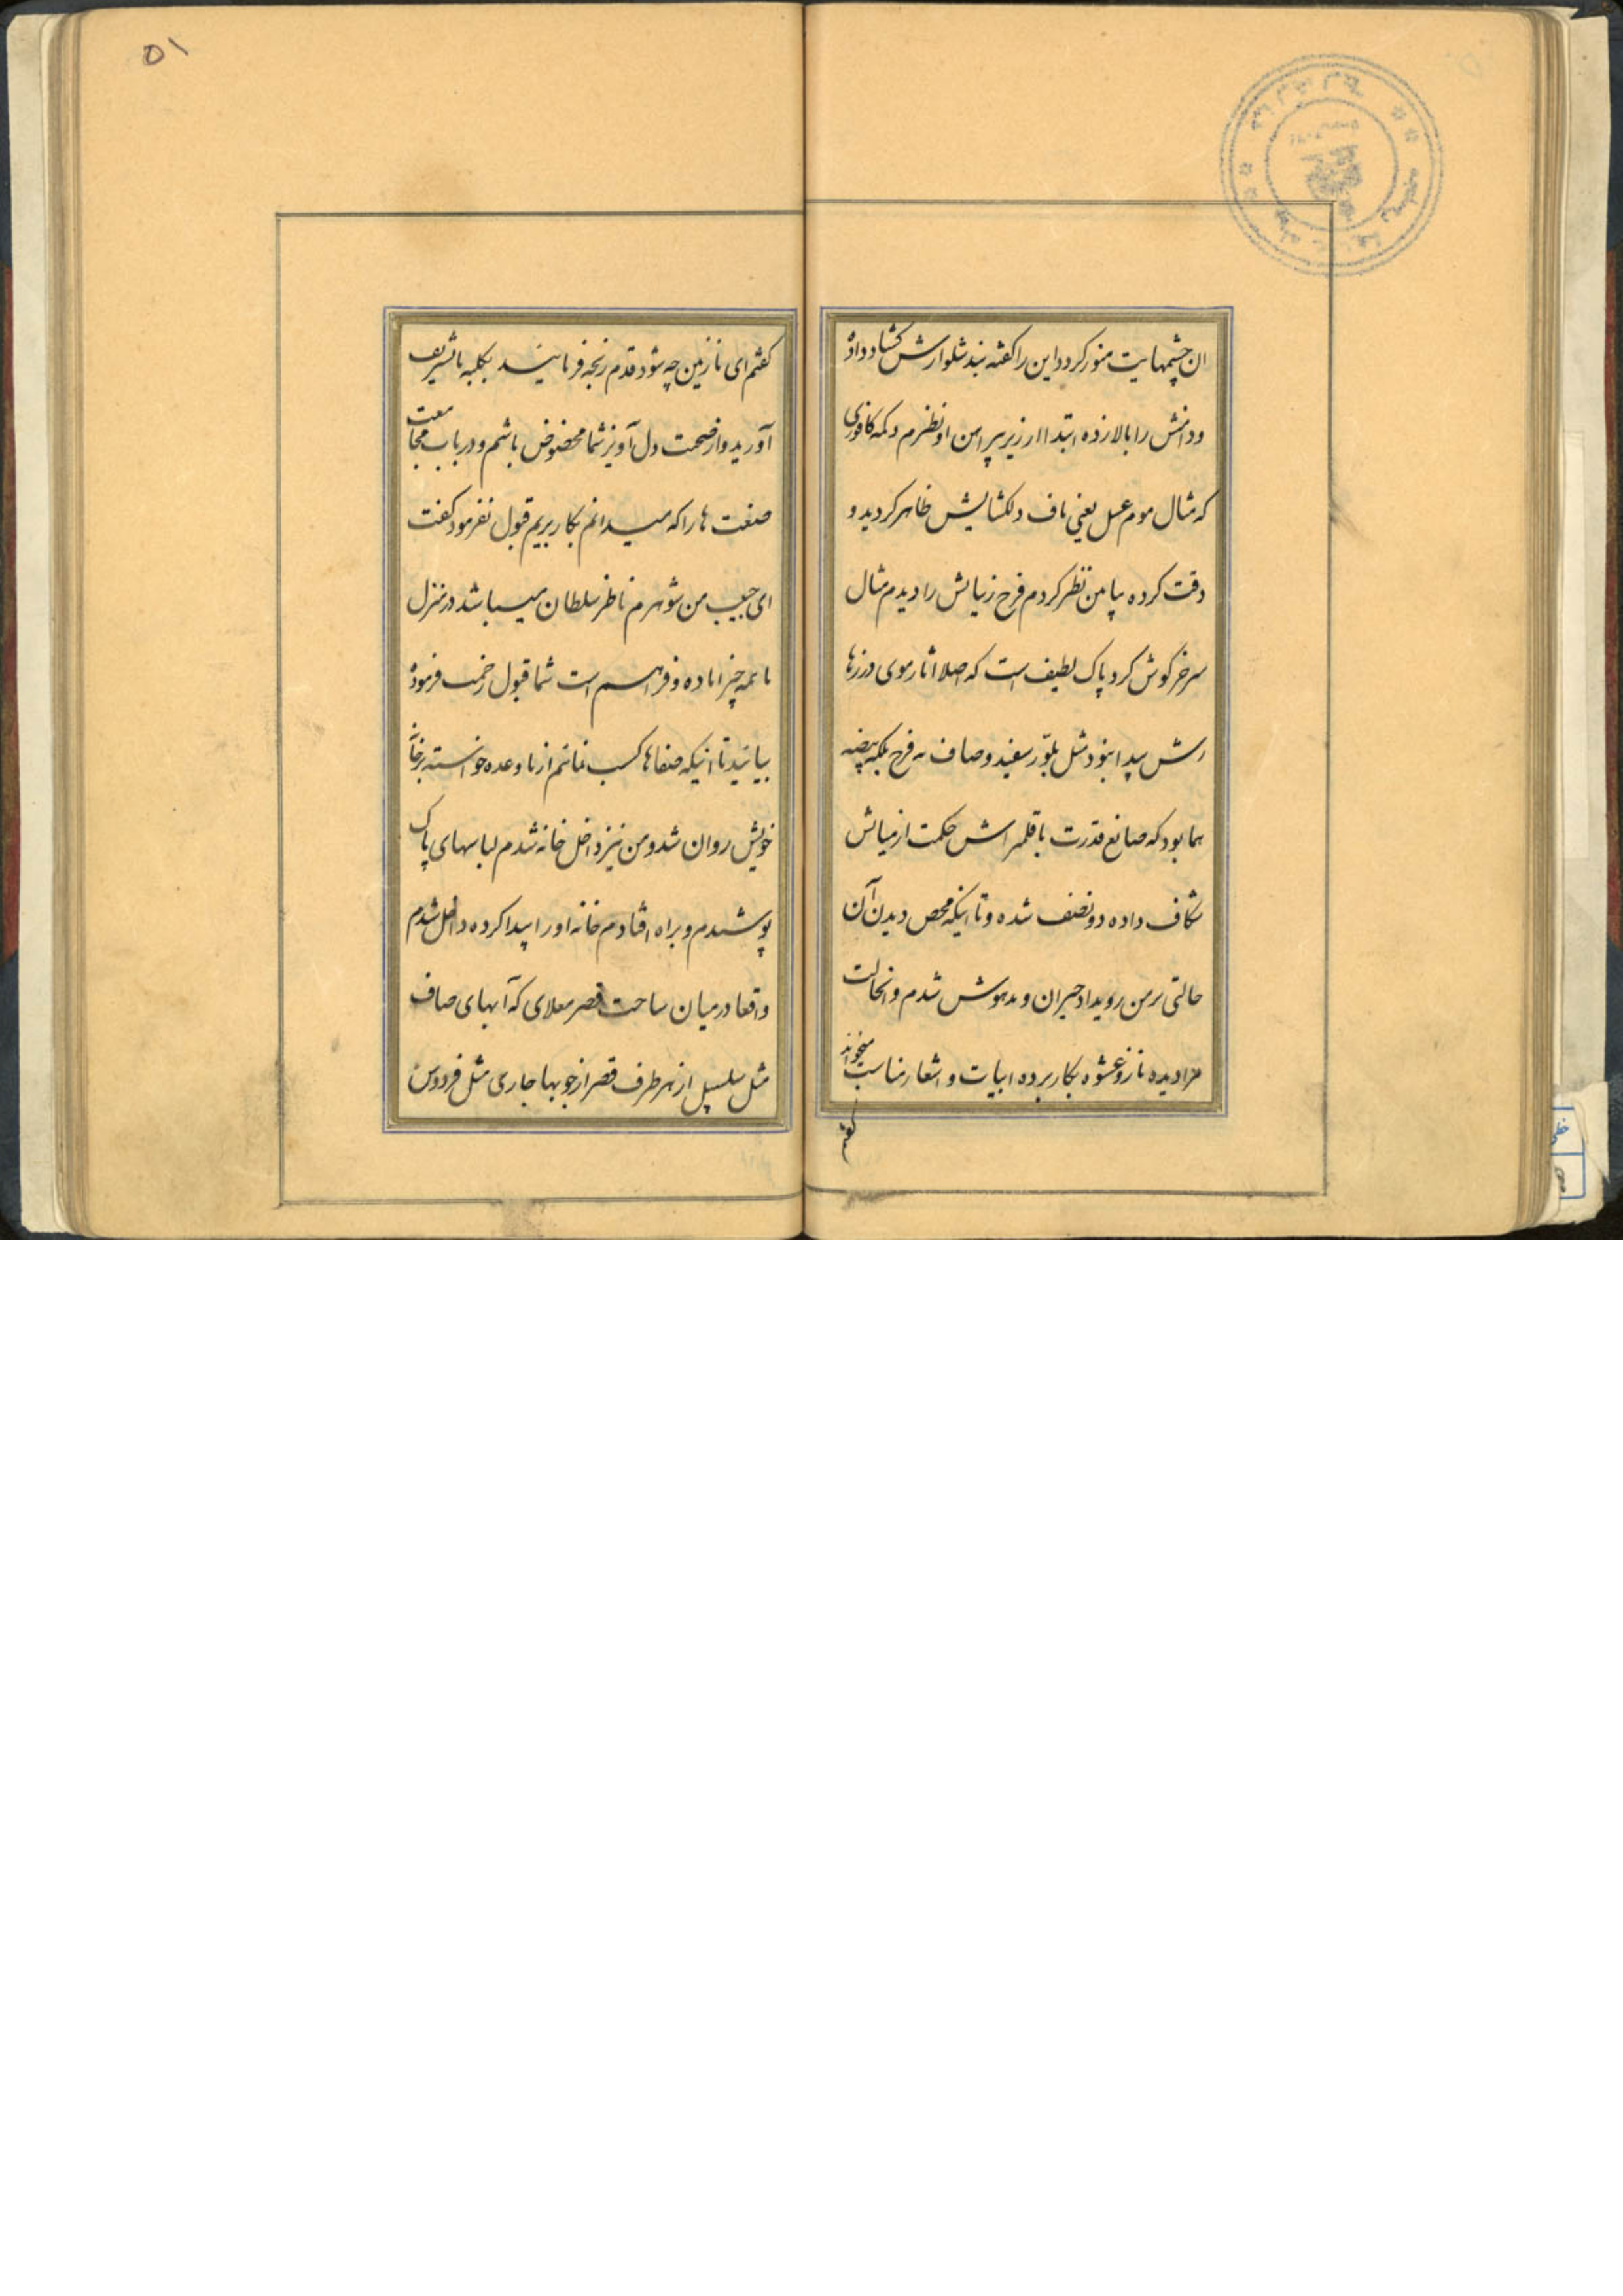 ان چشمهایت منور کردد این را کفته بند شلوارش کشاد داده
ودامنش را بالا زده ابتدا از زیر پیراهن او نظرم دکمه کافوری
که مثال موم عسل یعنی ناف دلکشایش ظاهر کردید و
دقت کرده بپامن نظر کردم فرج زیبایش را دیدم مثال
سر خرکوش کرد پاک لطیف است که اصلا اثار موی در زها
رش پیدا نبود مثل بلّور سفید و صاف نه فرج بلکه بیضه
هما بود که صانع قدرت با قلمتراش حکمت از میانش
شکاف داده دو نصف شده و تا اینکه محض دیدن آن
حالتی بر من رویداد حیران و مدهوش شدم و انحالت
مرا دیده ناز و عشوه بکار برده ابیات و اشعار مناسب میخواند
کفتم
۵۱
کفتم ای نازنین چه شود قدم رنجه فرمایید بکلبه ما تشریف
آورید و از صحبت دل آویز شما محضوض باشم و در باب مجامعت
صنعت ها را که میدانم بکار بریم قبول نفرمود کفت
ای حبیب من شوهرم ناظر سلطان میباشد در منزل
ما همه چیز اماده و فراهم است شما قبول زحمت فرموده
بیائید تا اینکه صفاها کسب نمائیم از ما وعده خواسته بر خانه
خویش روان شد و من نیز داخل خانه شدم لباسهای پاک
پوشیدم و براه افتادم خانه او را پیدا کرده داخل شدم
واقعا در میان ساحت قصر معلای که آبهای صاف
مثل سلسبیل از هر طرف قصر از جویها جاری مثل فردوس